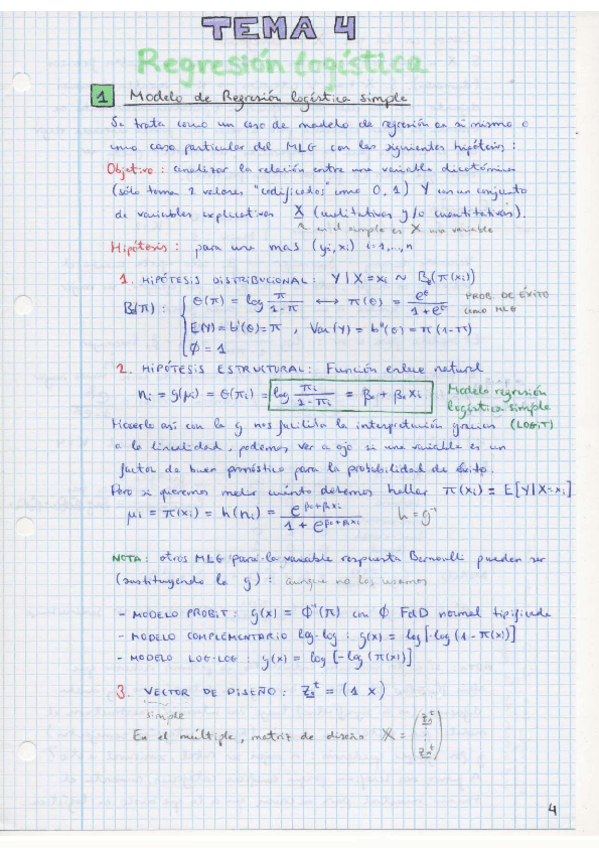 TEMA 4
Regresión logística
1 Modelo de Regresión logística simple
Se trata como un caso de modelo de regresión en si mismo o
como caso particular del MLG con las siguientes hipótesis:
Objetivo: analizar la relación entre una variable dicotómica
(sólo toma 2 valores "codificados" como 0, 1) Y con un conjunto
de variables explicativas X (cualitativas y/o cuantitativas).
en el simple es X una variable
Hipótesis: para una mas (yi, xi) i=1,...,n
1. HIPÓTESIS DISTRIBUCIONAL: Y|X=xi ~ Be(π(xi))
Be(π): { θ(π) = log π/(1-π) ↔ π(θ) = e^θ/(1+e^θ) PROB. DE ÉXITO como MLG
E(Y)=b'(θ)=π, Var(Y)=b''(θ)=π(1-π)
φ=1
2. HIPÓTESIS ESTRUCTURAL: Función enlace natural
ηi = g(μi) = θ(πi) = log πi/(1-πi) = β0 + β1xi Modelo regresión logística simple (LOGIT)
Hacerlo así con la g nos facilita la interpretación gracias
a la linealidad, podemos ver a ojo si una variable es un
factor de buen pronóstico para la probabilidad de éxito.
Pero si queremos medir cuánto debemos hallar π(xi) = E[Y|X=xi]
μi = π(xi) = h(ηi) = e^(β0+β1xi)/(1+e^(β0+β1xi)) h=g⁻¹
NOTA: otros MLG para la variable respuesta Bernoulli pueden ser
(sustituyendo la g): aunque no los usamos
- MODELO PROBIT: g(x) = Φ⁻¹(π) con Φ FdD normal tipificada
- MODELO COMPLEMENTARIO log-log: g(x) = log[-log(1-π(x))]
- MODELO LOG-LOG: g(x) = log[-log(π(x))]
3. VECTOR DE DISEÑO: Z^t = (1 x)
simple
En el múltiple, matriz de diseño X =
4